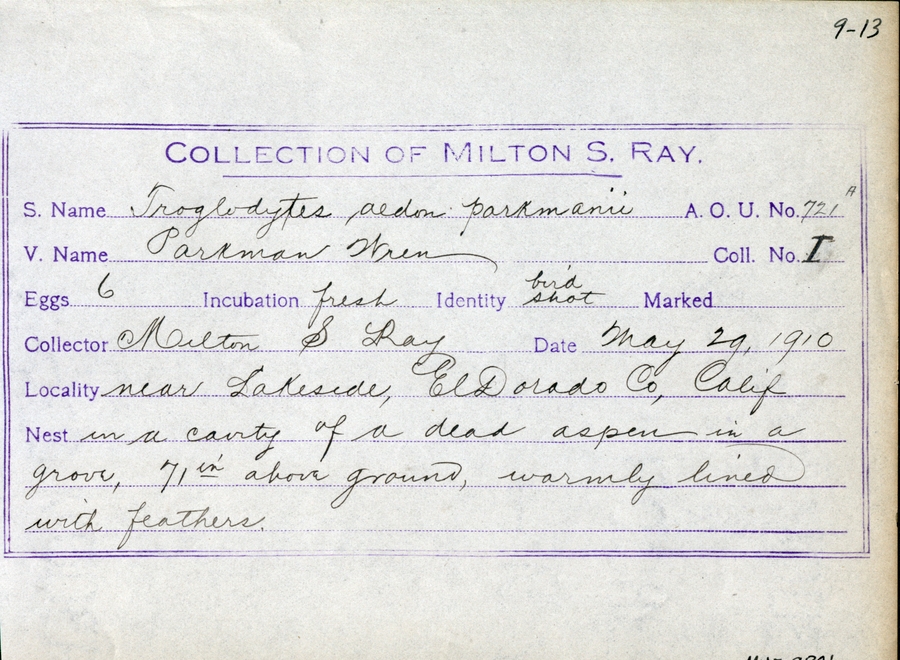 9-13
COLLECTION OF MILTON S. RAY.
S. Name Troglodytes aedon parkmanii A. O. U. No. 721A
V. Name Parkman Wren Coll. No. I
Eggs 6 Incubation fresh Identity bird shot Marked
Collector Milton S Ray Date May 29, 1910
Locality near Lakeside, El Dorado Co, Calif
Nest in a cavity of a dead aspen in a
grove, 71 in above ground, warmly lined
with feathers.